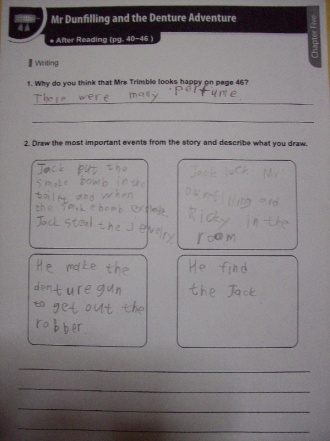 Mr Dunfilling and the Denture Adventure
4A
• After Reading (pg. 40~46)
Chapter Five
Writing
1. Why do you think that Mrs Trimble looks happy on page 46?
There were many perfume
2. Draw the most important events from the story and describe what you draw.
Jack put the
smoke bomb in the
and when
the bomb
Jack steal the
Jack lock Mr
and
Ricky in the
room
He make the
denture gun
to get out the
robber
He find
the Jack